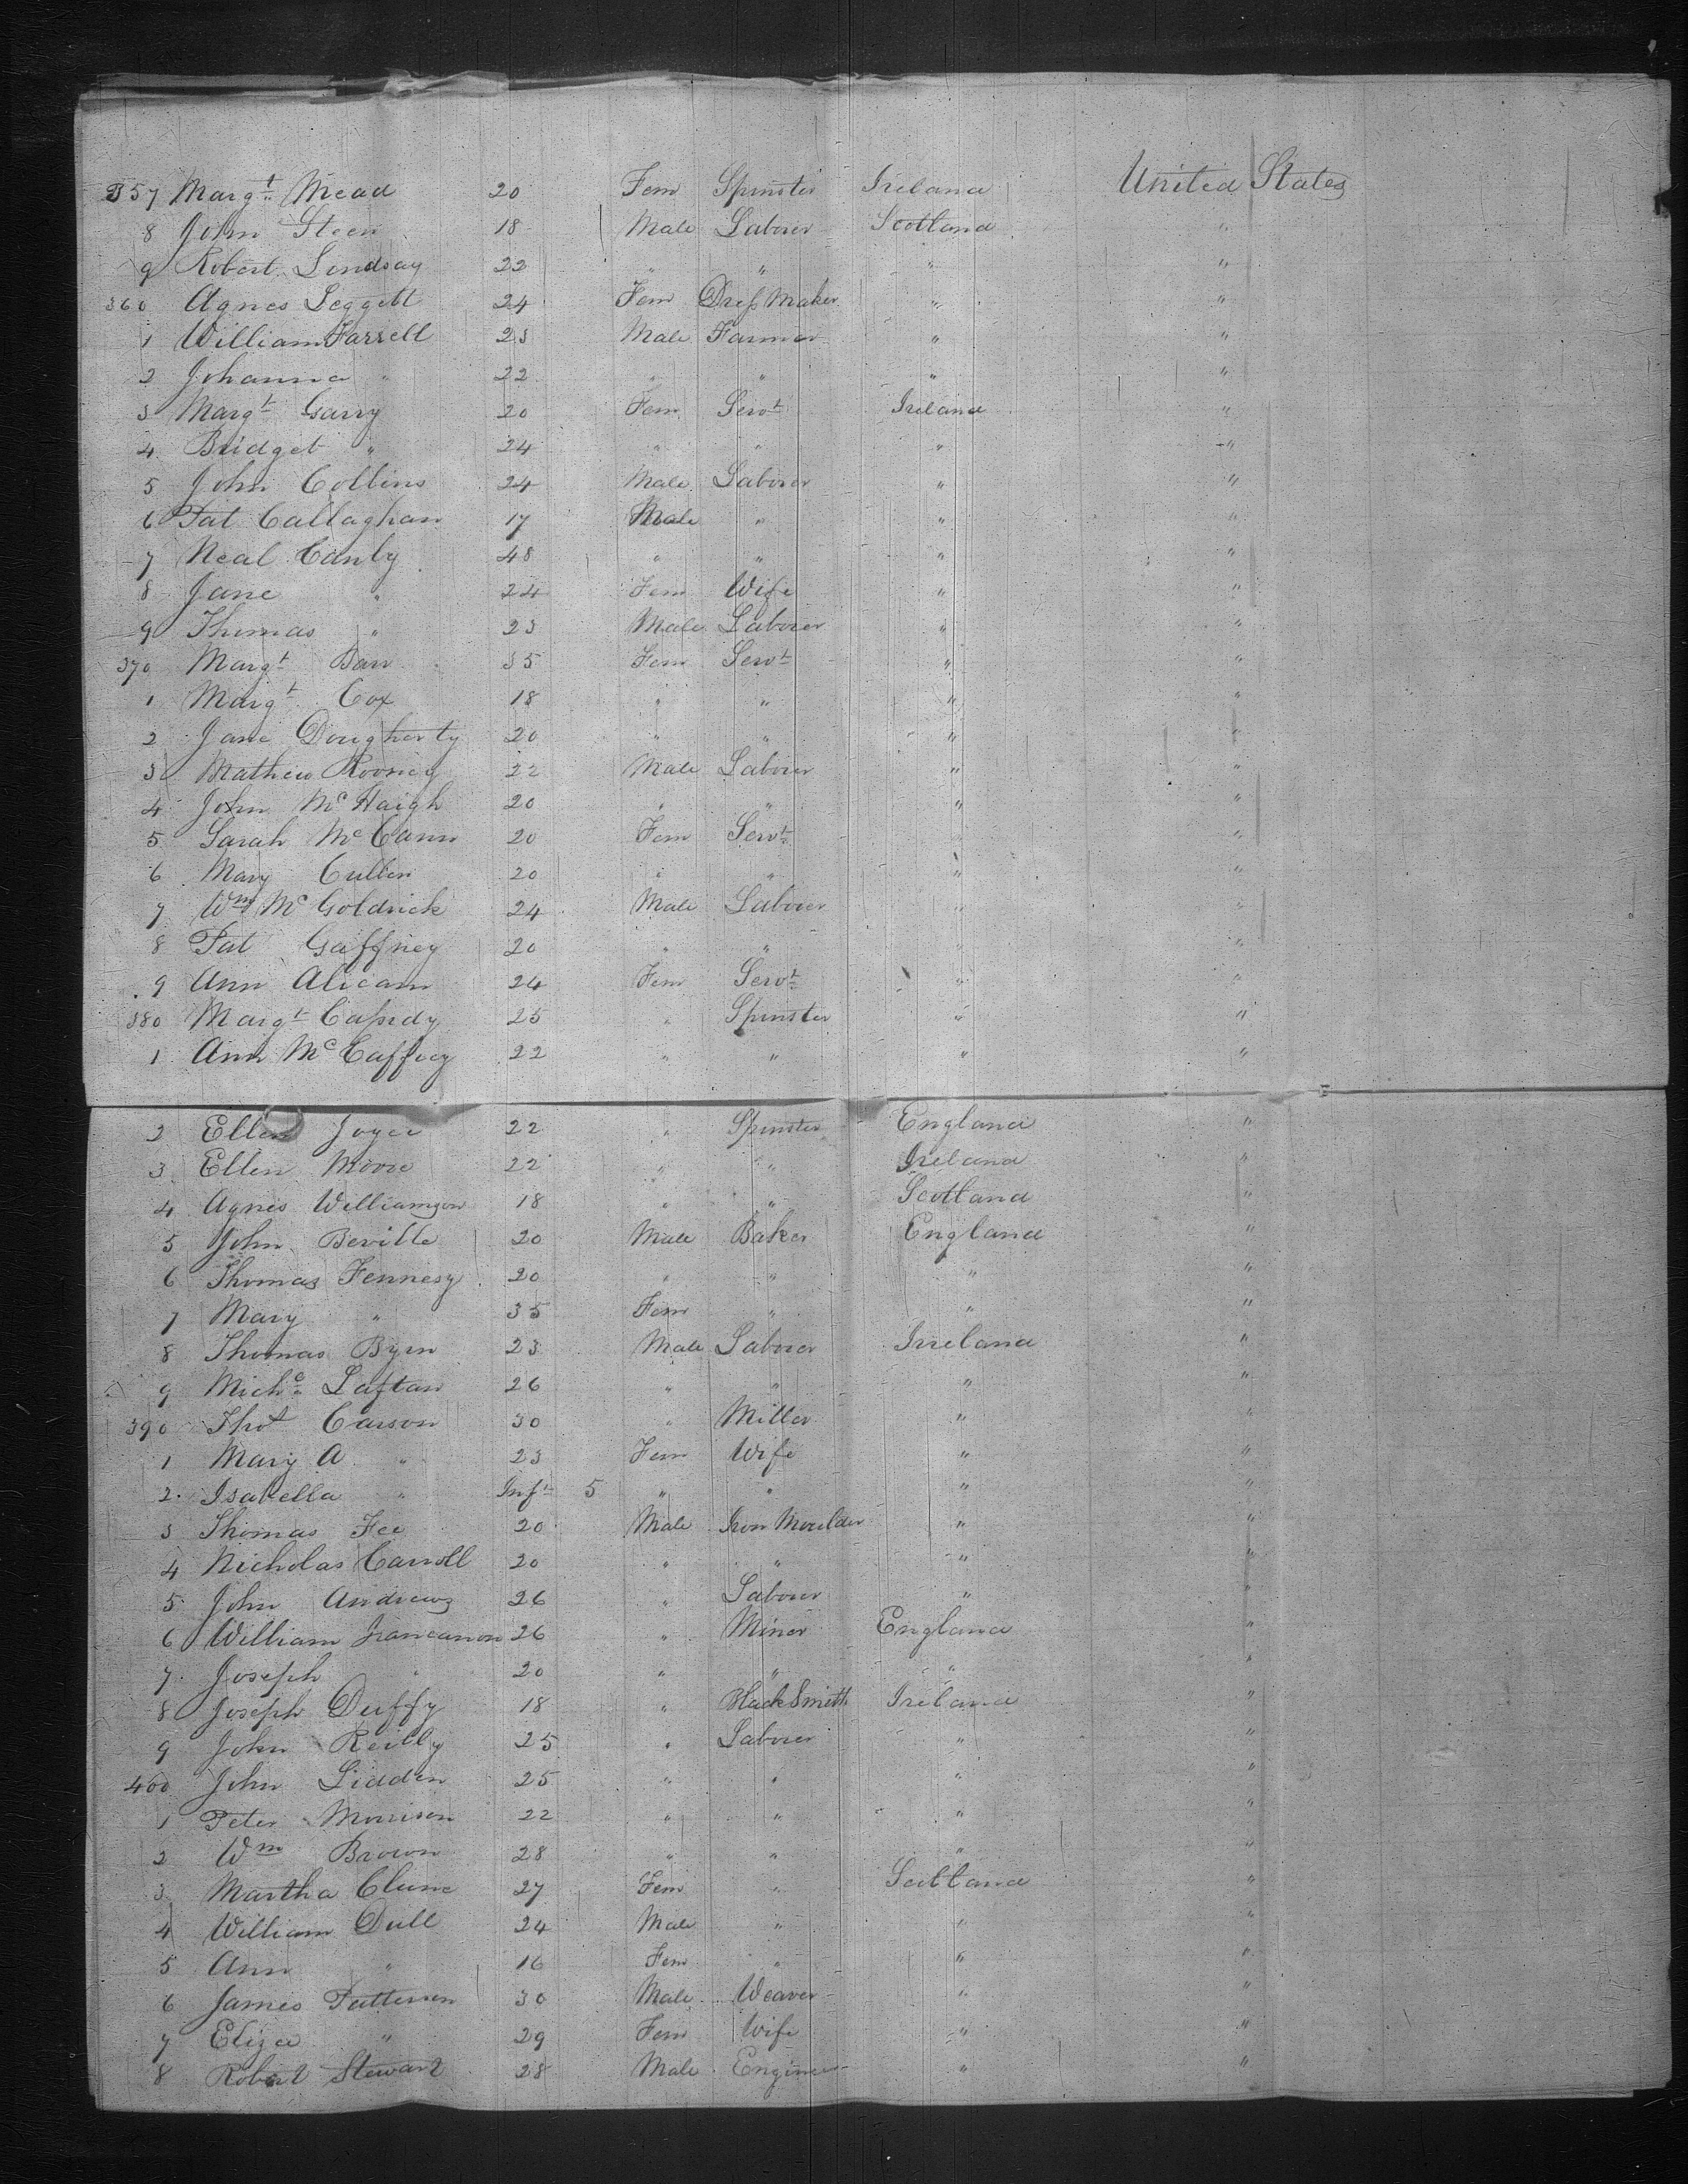 357 Margt Mead 20 Fem Spinster Ireland United States
8 John Steen 18 Male Laborer Scotland "
9 Robert Lindsay 22 " " " "
360 Agnes Leggett 24 Fem Dress Maker " "
1 William Farrell 23 Male Farmer " "
2 Johanna " 22 " " " "
3 Margt Garry 20 Fem Servt Ireland "
4 Bridget " 24 " " " "
5 John Collins 24 Male Laborer " "
6 Pat Callaghan 17 Male " " "
7 Neal Canly 48 " " " "
8 Jane " 24 Fem Wife " "
9 Thomas " 23 Male Laborer " "
370 Margt Barr 35 Fem Servt " "
1 Margt Cox 18 " " " "
2 Jane Dougherty 20 " " " "
3 Mathew Rooney 22 Male Laborer " "
4 John McHaigh 20 " " " "
5 Sarah McCann 20 Fem Servt " "
6 Mary Cullen 20 " " " "
7 Wm McGoldrick 24 Male Laborer " "
8 Pat Gaffney 20 " " " "
9 Ann 24 Fem Servt " "
380 Margt Cassidy 25 " Spinster " "
1 Ann McCaffrey 22 " " " "
2 Ellen Joyce 22 " Spinster England "
3 Ellen Moore 22 " " Ireland "
4 Agnes Williamson 18 " " Scotland "
5 John Beville 20 Male Baker England "
6 Thomas Fennesy 20 " " " "
7 Mary " 35 Fem " " "
8 Thomas Byrn 23 Male Laborer Irreland "
9 Michl Laftan 26 " " " "
390 Thos Carson 30 " Miller " "
1 Mary A " 23 Fem Wife " "
2 Isabella " Inft 5 " " " "
3 Thomas Fee 20 Male Iron Moulder " "
4 Nicholas Carroll 20 " " " "
5 John Andrews 26 " Laborer " "
6 William 26 " Miner England "
7 Joseph " 20 " " " "
8 Joseph Duffy 18 " Black Smith Ireland "
9 John Reilly 25 " Laborer " "
400 John Lidden 25 " " " "
1 Peter Morrison 22 " " " "
2 Wm Brown 28 " " " "
3 Martha Clune 27 Fem " Scotland "
4 William Dull 24 Male " " "
5 Ann " 16 Fem " " "
6 James Patterson 30 Male Weaver " "
7 Eliza " 29 Fem Wife " "
8 Robert Stewart 28 Male Engineer " "